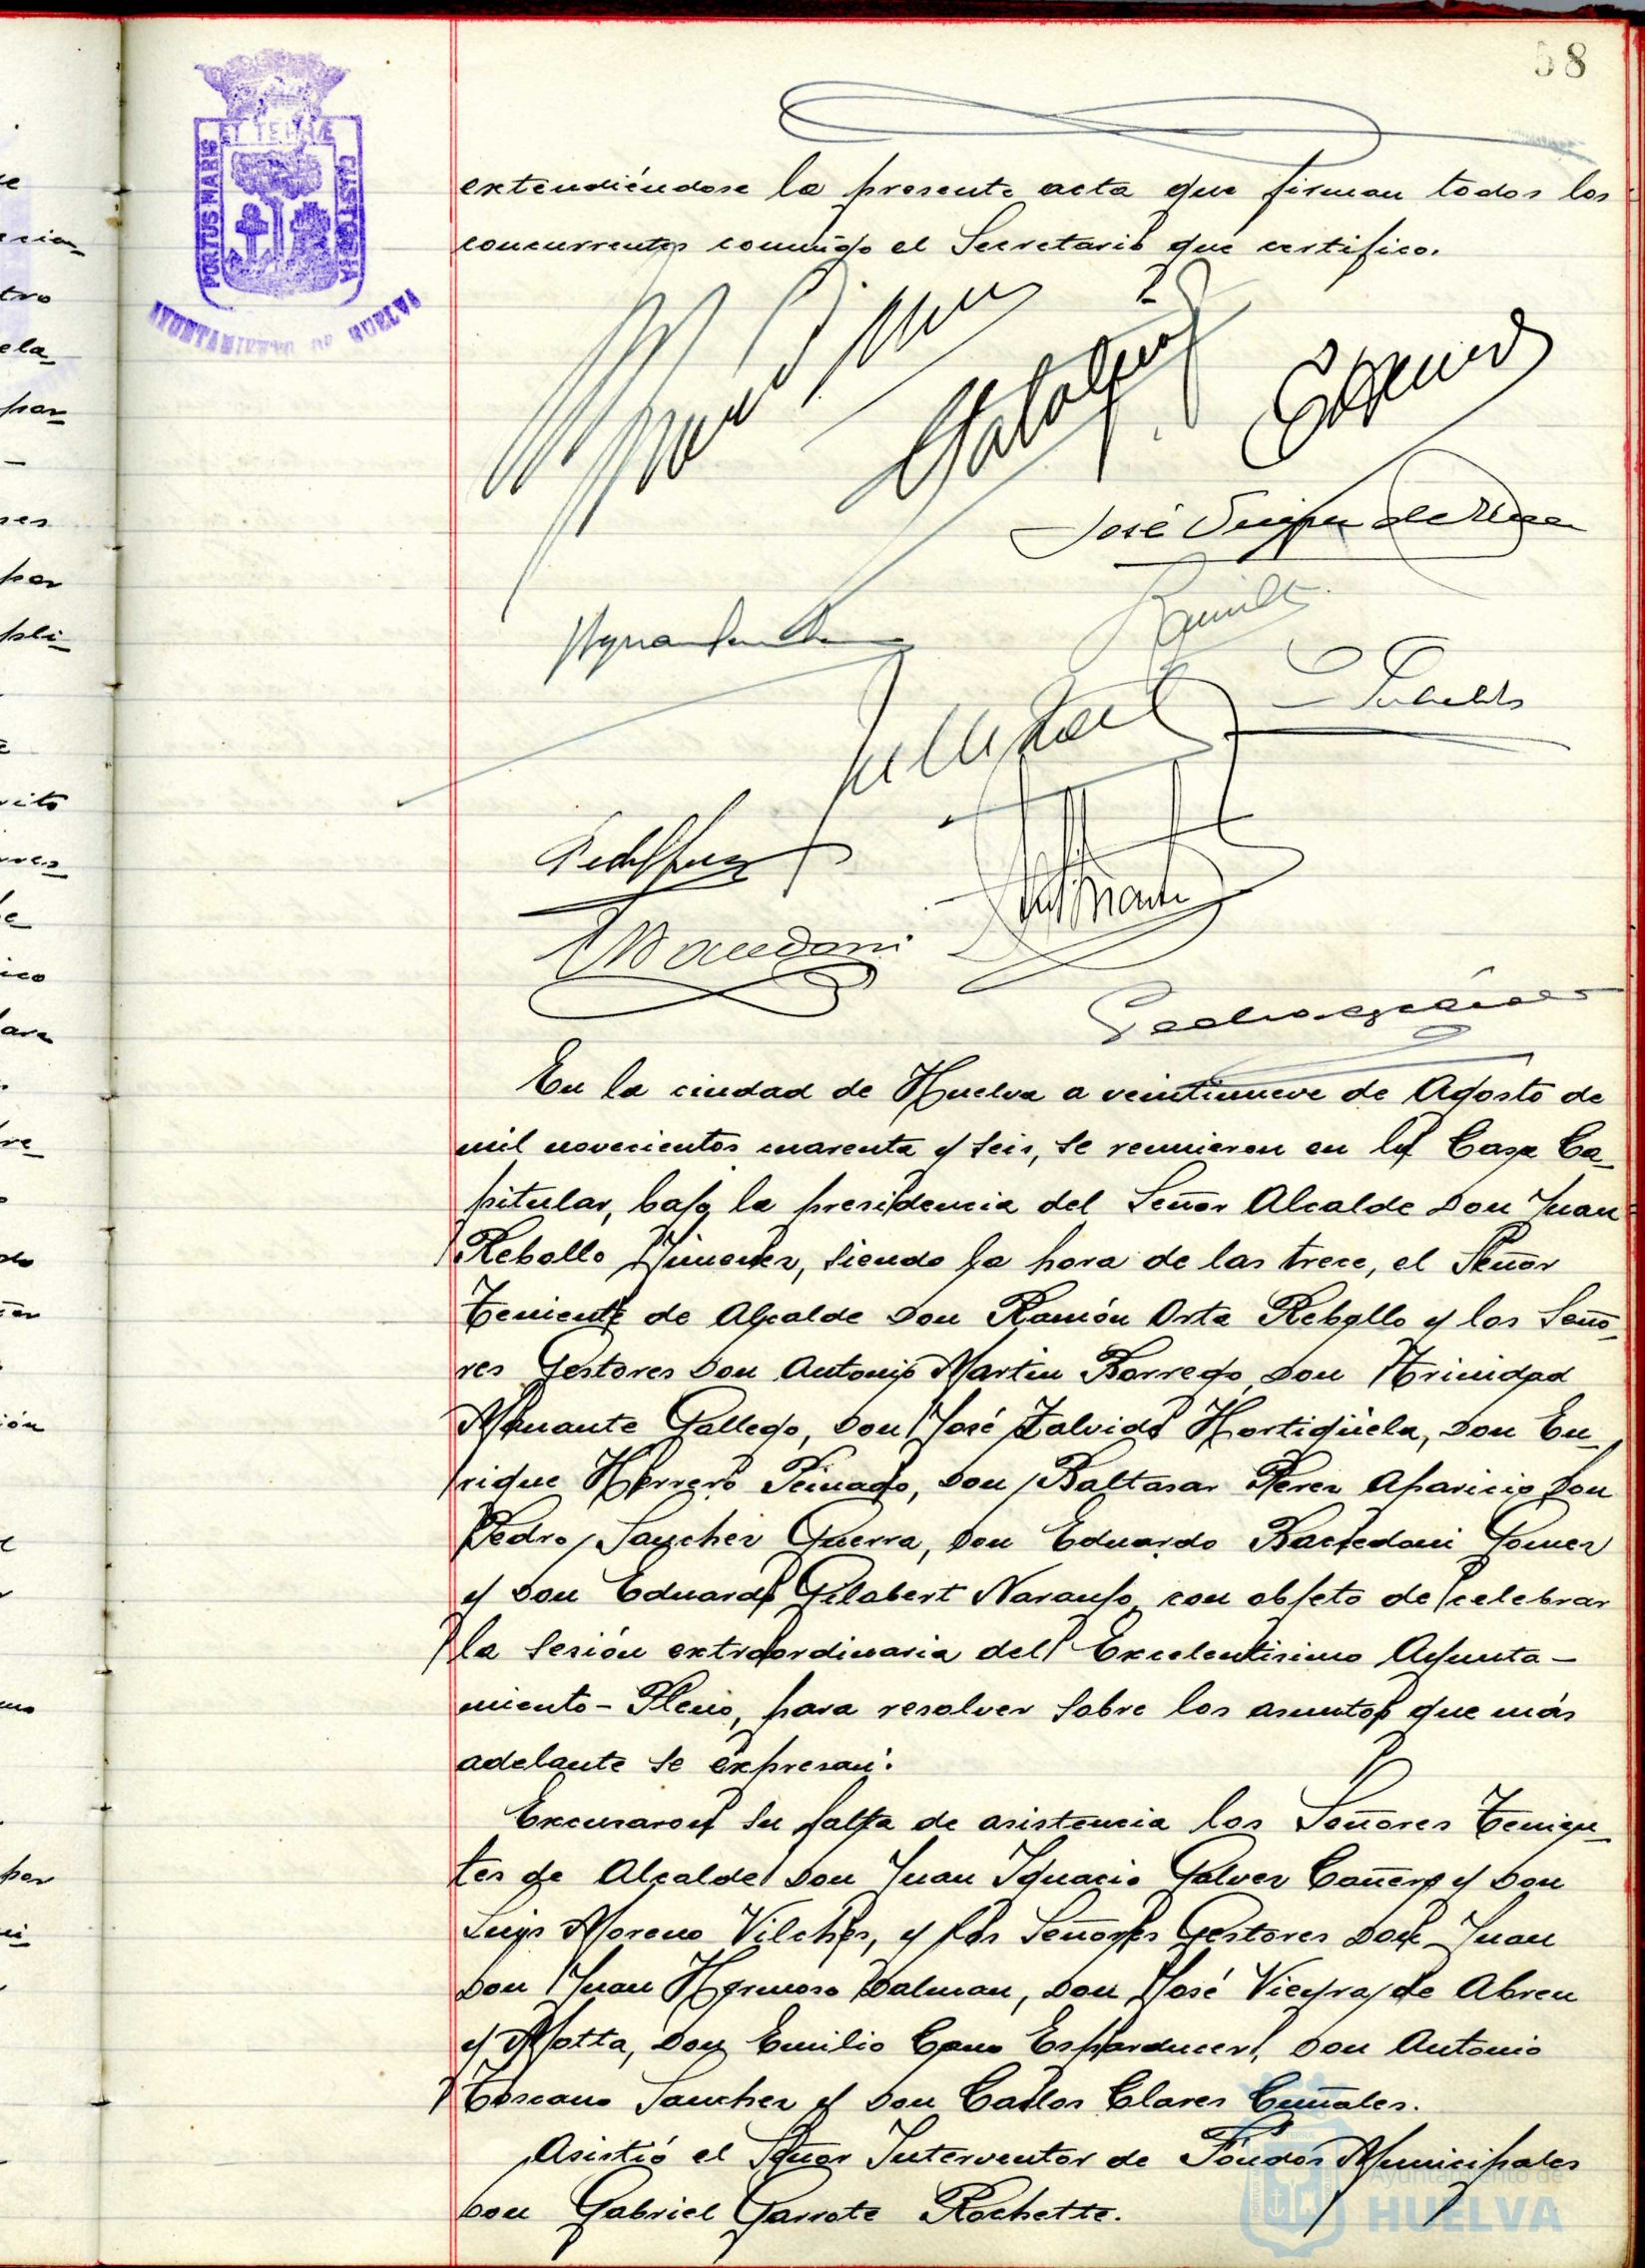 58
ET TERRÆ
PORTUS MARIS
CUSTODIA
AYUNTAMIENTO DE HUELVA
extendiéndose la presente acta que firman todos los
concurrentes conmigo el Secretario que certifico.
José
En la ciudad de Huelva a veintinueve de Agosto de
mil novecientos cuarenta y seis, se reunieron en la Casa Ca-
pitular, bajo la presidencia del Señor Alcalde Don Juan
Rebollo Jimenez, siendo la hora de las trece, el Señor
Teniente de Alcalde Don Ramón Orta Rebollo y los Seño-
res Gestores Don Antonio Martin Borrego, Don Trinidad
Mnuante Gallego, Don José Zalvide Hortigüela, Don En-
rique Herrero Peinado, Don Baltasar Perez Aparicio Don
Pedro Sanchez Guerra, Don Eduardo Bacedoni Gomez
y Don Eduardo Gilabert Naranjo, con objeto de celebrar
la sesión extraordinaria del Excelentisimo Ayunta-
miento-Pleno, para resolver sobre los asuntos que más
adelante se expresan.
Excusaron su falta de asistencia los Señores Tenien-
tes de Alcalde Don Juan Ignacio Galvez Cañero y Don
Luis Moreno Vilches, y los Señores Gestores Don Juan
Don Juan Hermoso Dalman, Don José Vieyra de Abreu
y Motta, Don Emilio Cano Esparducer, Don Antonio
Toscano Sanchez y Don Carlos Clares Cumales.
Asistió el Señor Interventor de Fondos Municipales
Don Gabriel Garrote Rochette.
Ayuntamiento de
HUELVA